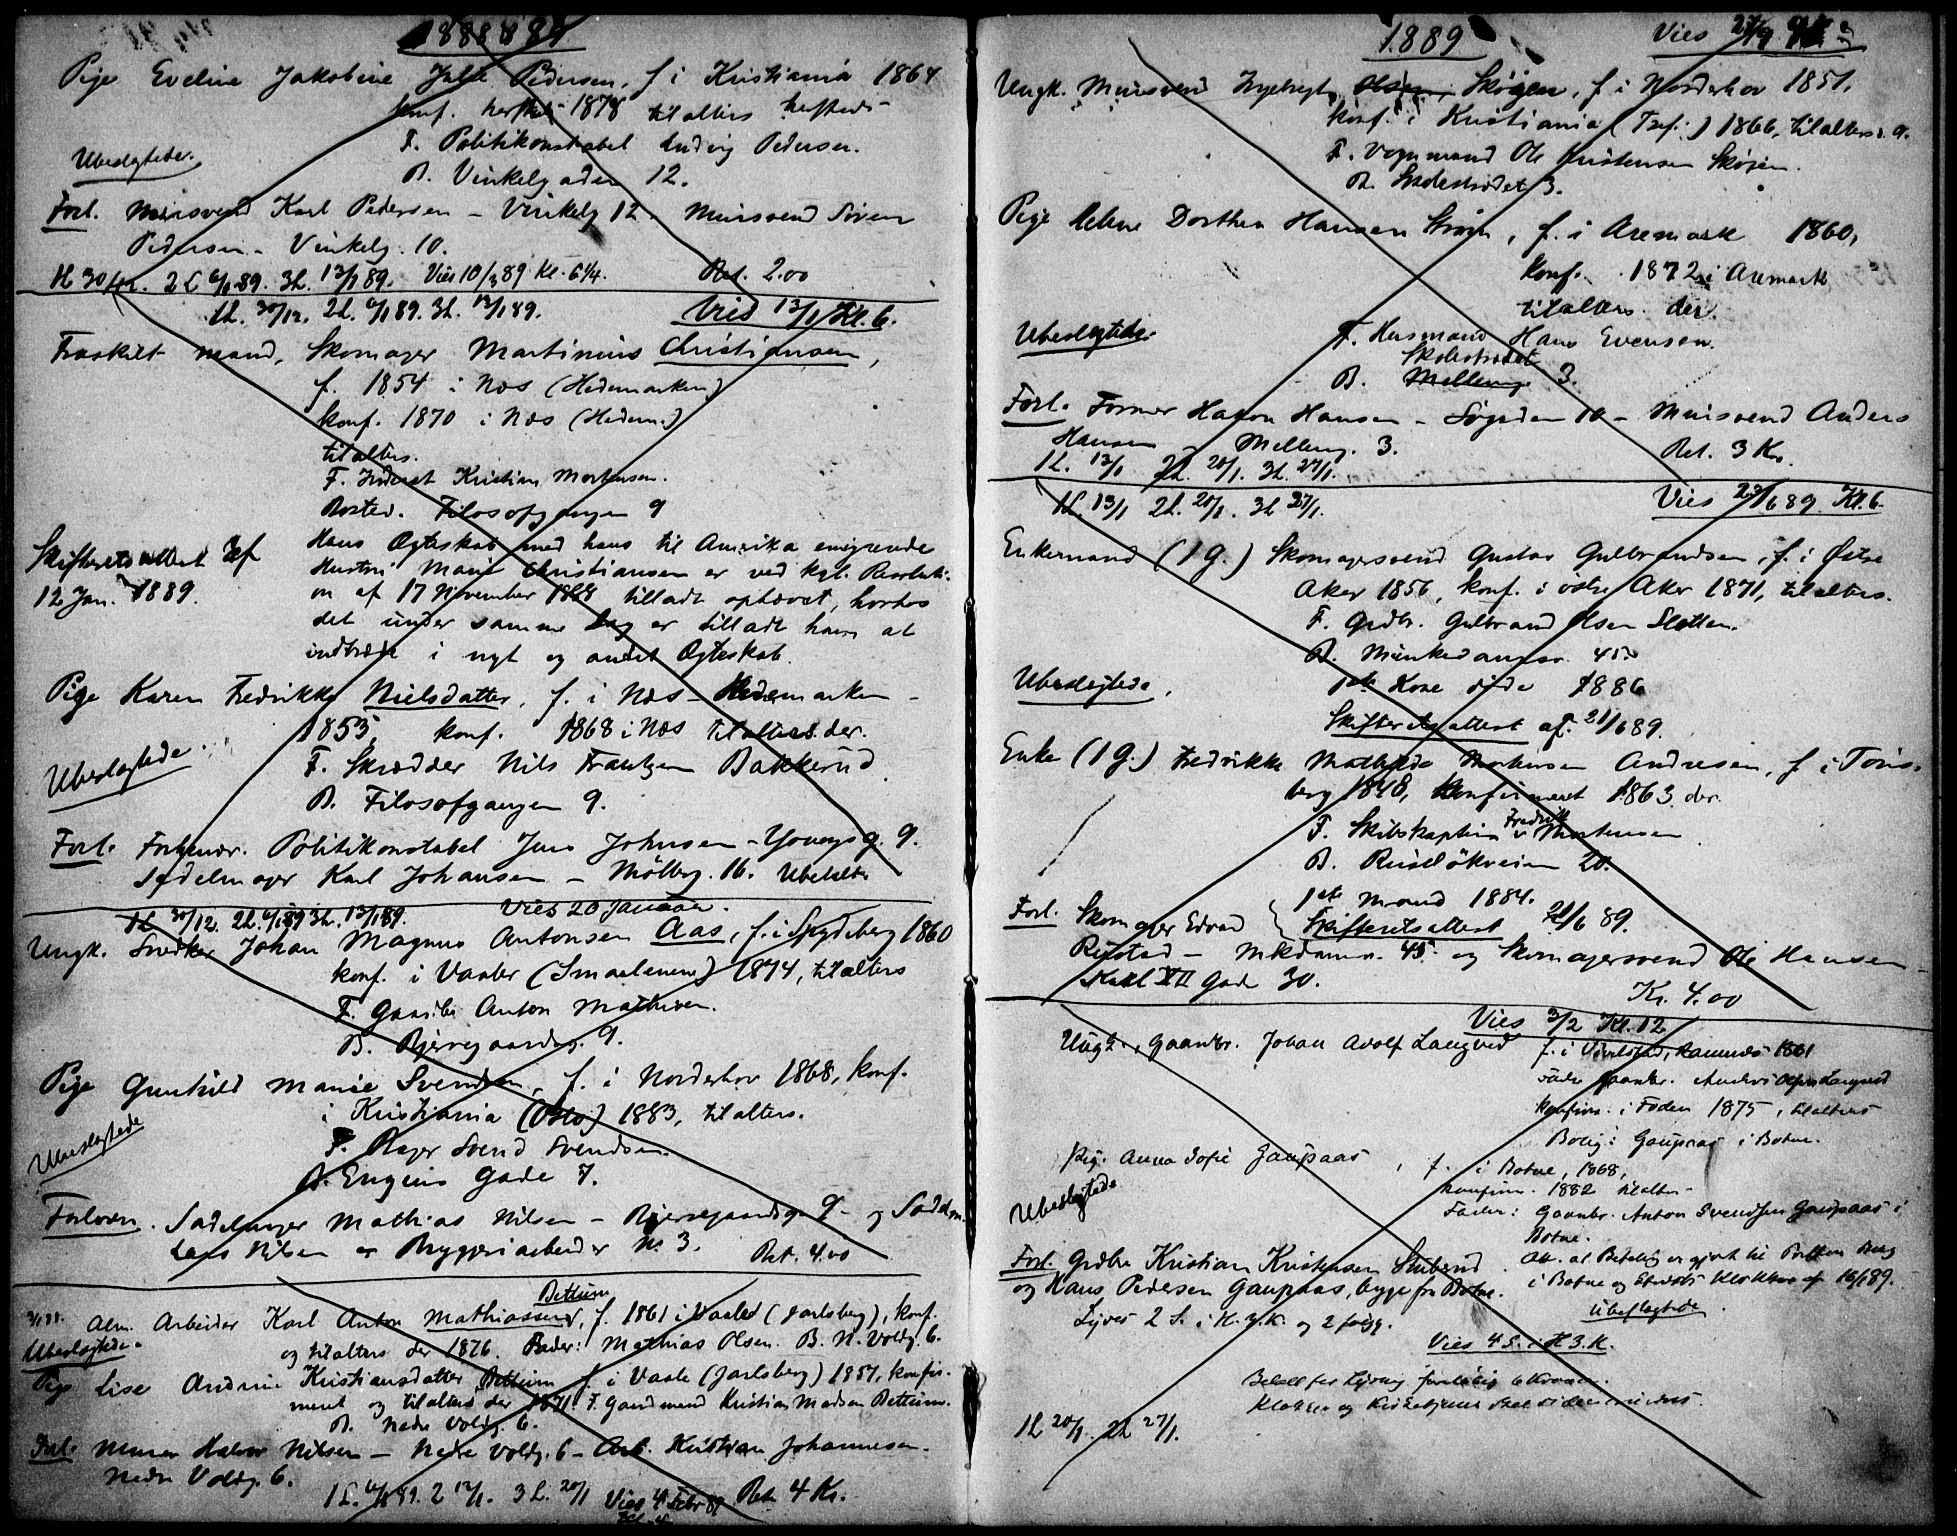 1888 89
Pige Eveline Jakobine Julie Pedersen, f i Kristiania 1864
konf. hersteds 1878 til alters hersteds
F. Politikonstabel Ludvig Pedersen.
B. Vinkelgaden 12.
Ubeslegtede.
Forl. Mursvend Karl Pedersen – Vinkelg 12. Mursvend Søren
Pedersen – Vinkelg. 10.
1L 30/12. 2L 6/1 89. 3L. 13/1 89. Vies 10/3 89 Kl. 6¼. Bet. 2.00
1L. 30/12. 2L. 6/1 89. 3L. 13/1 89. Vies 13/1 Kl. 6.
Fraskilt mand, Skomager Martinius Christiansen,
f. 1854 i Næs (Hedemarken)
konf. 1870 i Næs (Hedem.)
til alters.
F. Inderst Kristian Mortensen.
Bosted. Filosofgangen 9
Skifteretsattest af
12 Jan. 1889.
Hans Ægteskab med hans til Amerika emigrerede
Hustru Marie Christiansen er ved kgl. Resoluti-
on af 17 November 1888 tilladt ophævet, hvorhos
det under samme Dag er tilladt ham at
indtræde i nyt og andet Ægteskab.
Pige Karen Fredrikke Nielsdatter, f. i Næs – Hedemarken –
1853, konf. 1868 i Næs til alters der.
F. Skrædder Nils Frantzen Bakkerud
B. Filosofgangen 9.
Ubeslegtede
Forl. Forhenv. Politikonstabel Jens Johnsen – Youngsg. 9.
Sadelmager Karl Johansen – Møllerg. 16. Ubetalt
1L 30/12. 2L. 6/1 89 3L. 13/1 89. Vies 20 Januar.
Ungk. Snedker Johan Magnus Antonsen Aas, f. i Spydeberg 1860
konf. i Vaaler (Smaalenene) 1874, til alters
F. Gaardbr Anton Mathisen.
B. Bjerregaardsg. 9.
Pige Gunhild Marie Svendsen, f. i Norderhov 1868, konf.
i Kristiania (Oslo) 1883, til alters.
F. Bager Svend Svendsen.
B. Enginis Gade 7.
Ubeslegtede
Forlover. Sadelmager Mathias Nilsen – Bjerregaardsg. 9 – og Sadelm.
Lars Nilsen er Bryggeriarbeider No. 3. Bet. 4.00
Bettum
Ubeslegtede. Arbeider Karl Anton Mathiassen, f. 1861 i Vaale (Jarlsberg), konf.
og til alters der 1876. Fader: Mathias Olsen. B. N. Voldg. 6.
Pige Lise Andrine Kristiansdatter Bettum f. i Vaale (Jarlsberg) 1857, konfir-
meret og til alters der 1871 F. Gaardmand Kristian Madsen Bettum.
B. Nedre Voldg. 6.
Forl. Murer Halvor Nilsen – Nedre Voldg. 6 – Arb. Kristian Johannesen.
Nedre Voldg. 6.
1L. 6/1 89. 2 13/1. 3L. 20/1 Vies 4 Febr 89 Bet. 4 Kr.
1889 Vies 27/1
Ungk. Mursvend Ingebregt Olsen, Skøjen, f. i Norderhov 1851.
konf. i Kristiania (Tref.) 1866, til alters s. A.
F. Vognmand Ole Kristensen Skøjen.
B. Skolestrædet 3.
Pige Helene Dorthea Hansen Strøm, f. i Aremark 1860,
konf. 1872 i Aremark
til alters der.
F. Husmand Hans Evensen.
Ubeslegtede.
Skolestrædet
B. Mellemg. 3.
Forl. Former Hagen Hansen – Søgaden 10 – Mursvend Anders
Hansen Mellemg. 3. Bet. 3 Kr.
1L. 13/1 2L. 20/1. 3L. 27/1.
1L. 13/1 2L. 20/1. 3L 27/1. Vies 89 Kl. 6.
Enkemand (1 g.) Skomagersvend Gustav Gulbrandsen, f. i Østre
Aker 1856, konf. i østre Aker 1871, til alters.
F. Grdbr. Gulbrand Olsen Sletten.
B. Munkedamsv. 45
1ste Kone døde 1886
Ubeslegtede.
Skifteretsattest af. 21/1 89.
Enke (1 g.) Fredrikke Mathilde Mortensen Andresen, f. i Tøns-
berg 1848, Konfirmeret 1863 der.
F. Skibskaptein Fredrik Mortensen
B. Ruseløkveien 20.
1ste Mand 1884.
Skifteretsattest 21/1 89.
Forl. Skomager Edvard
Rustad – Mkdamsv. 45. og Skomagersvend Ole Hansen –
Karl XII Gade 30.
Kr. 4.00
Vies 3/2 Kl. 12
Ungk., Gaardbr. Johan Adolf Langrud f. i Vivelstad, Ramnæs 1861
Fader Gaardbr. Anders Olsen Langrud
Konfirm. i Foden 1875, til alters
Bolig: Gaupaas i Botne.
Pige Anna Sofie Gaupaas, f. i Botne, 1868,
Konfirm. 1882 til alters
Fader: Gaardbr. Anton Svendsen Gaupaas i
Botne.
Ubeslegtede
Forl. Grdbr. Kristian Kristensen
og Hans Pedersen Gaupaas, begge fra Botne.
Att. at Betaling er gjort til
i Botne og Klokker af 16/1 89.
Ubeslegtede.
Lyses 2 S. i H. 3. K. og 2 følgg.
Vies 4 S. i H 3. K.
Betalt for Lysning foreløbig 6 Kroner.
Klokker og
1L 20/1. 2L 27/1.